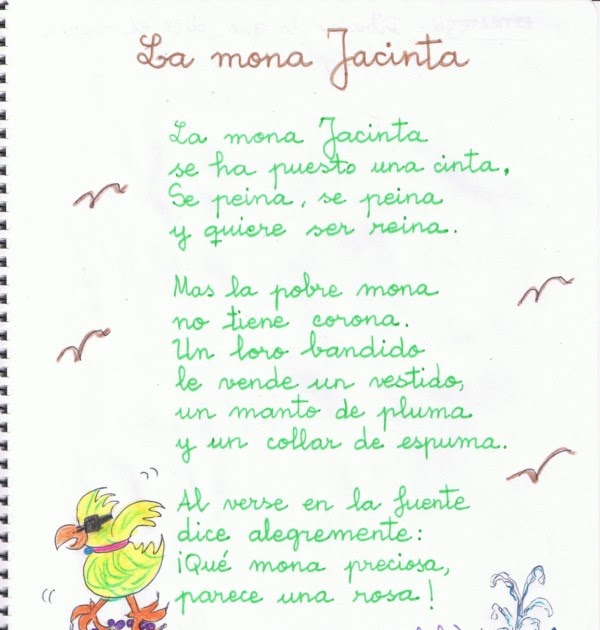 La mona Jacinta
La mona Jacinta
se ha puesto una cinta,
Se peina, se peina
y quiere ser reina.
Mas la pobre mona
no tiene corona.
Un loro bandido
le vende un vestido,
un manto de pluma
y un collar de espuma.
Al verse en la fuente
dice alegremente:
¡Qué mona preciosa,
parece una rosa!